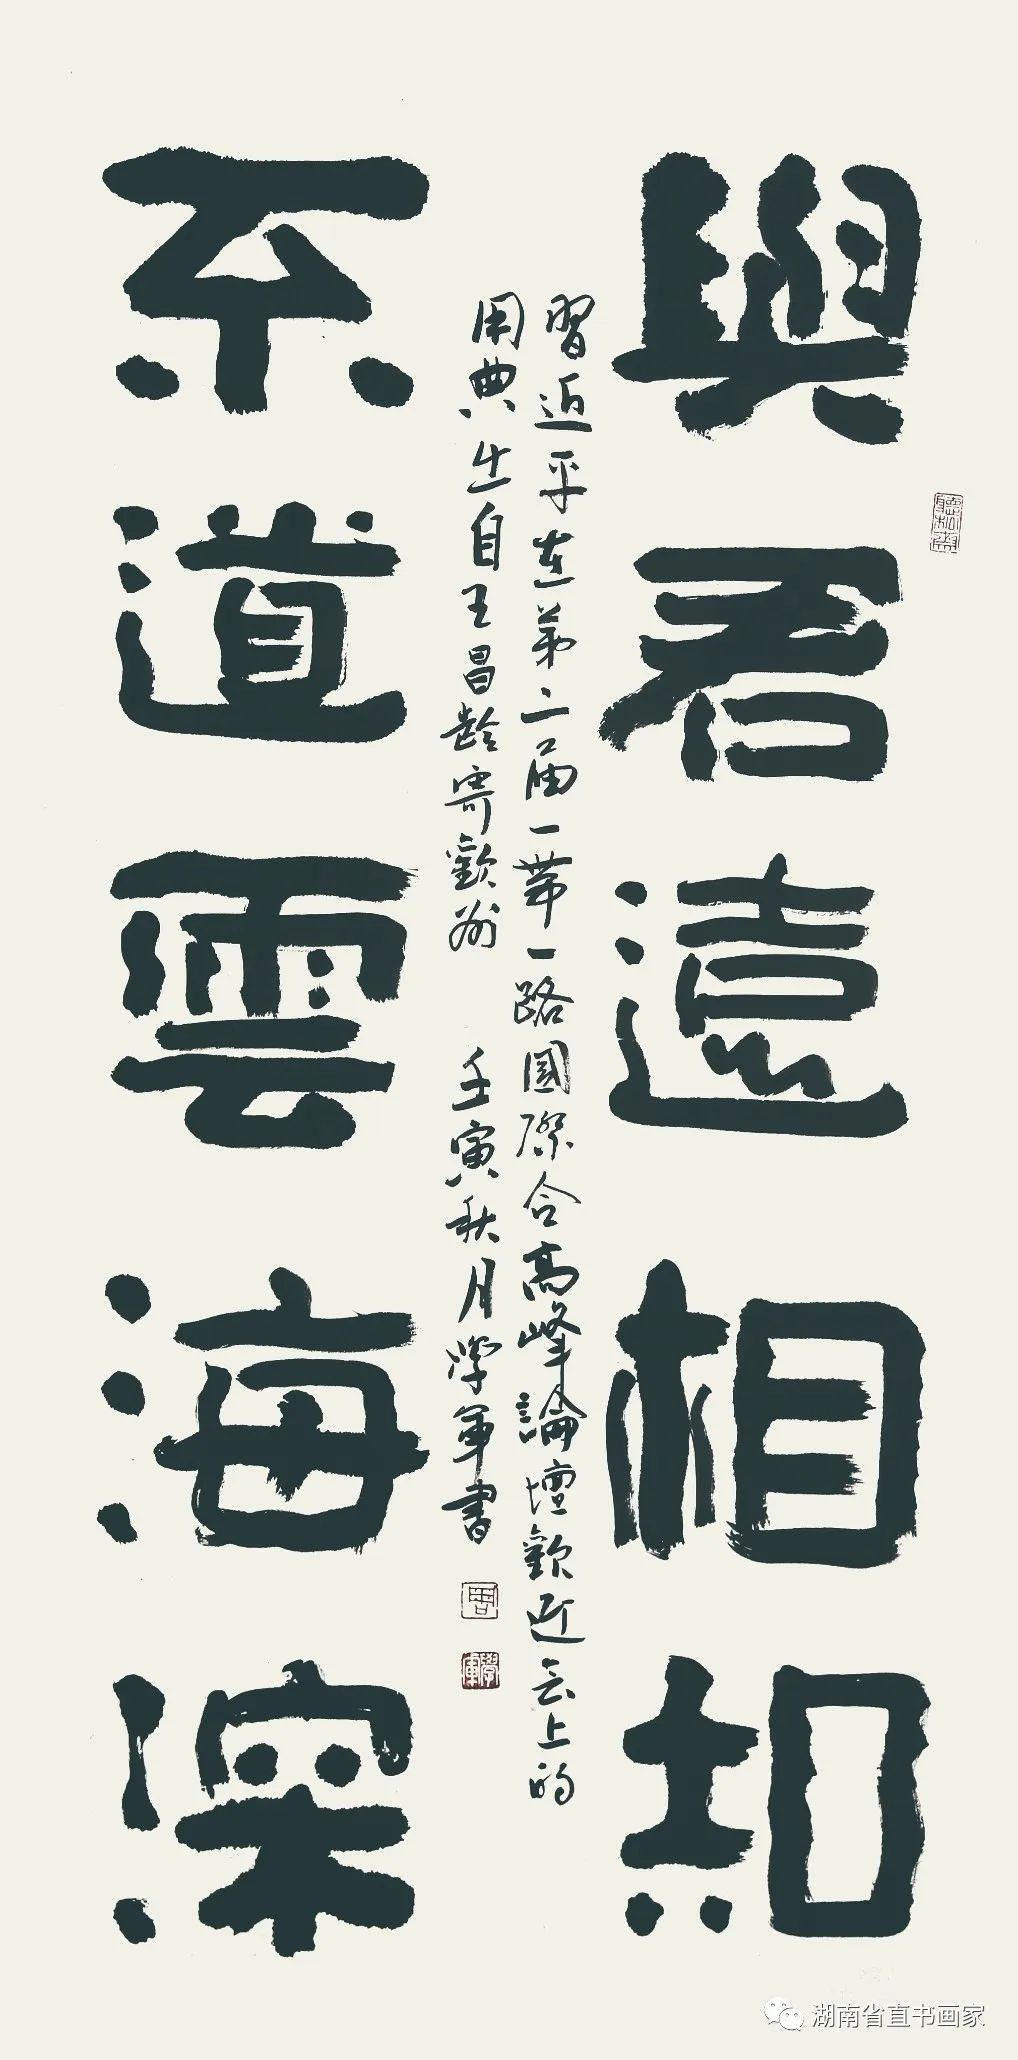 與君遠相知
不道雲海深
習近平在第二屆一带一路國際合高峰論壇歡迎会上的
用典出自王昌龄寄歡州
壬寅秋月學軍書
學軍
湖南省直书画家